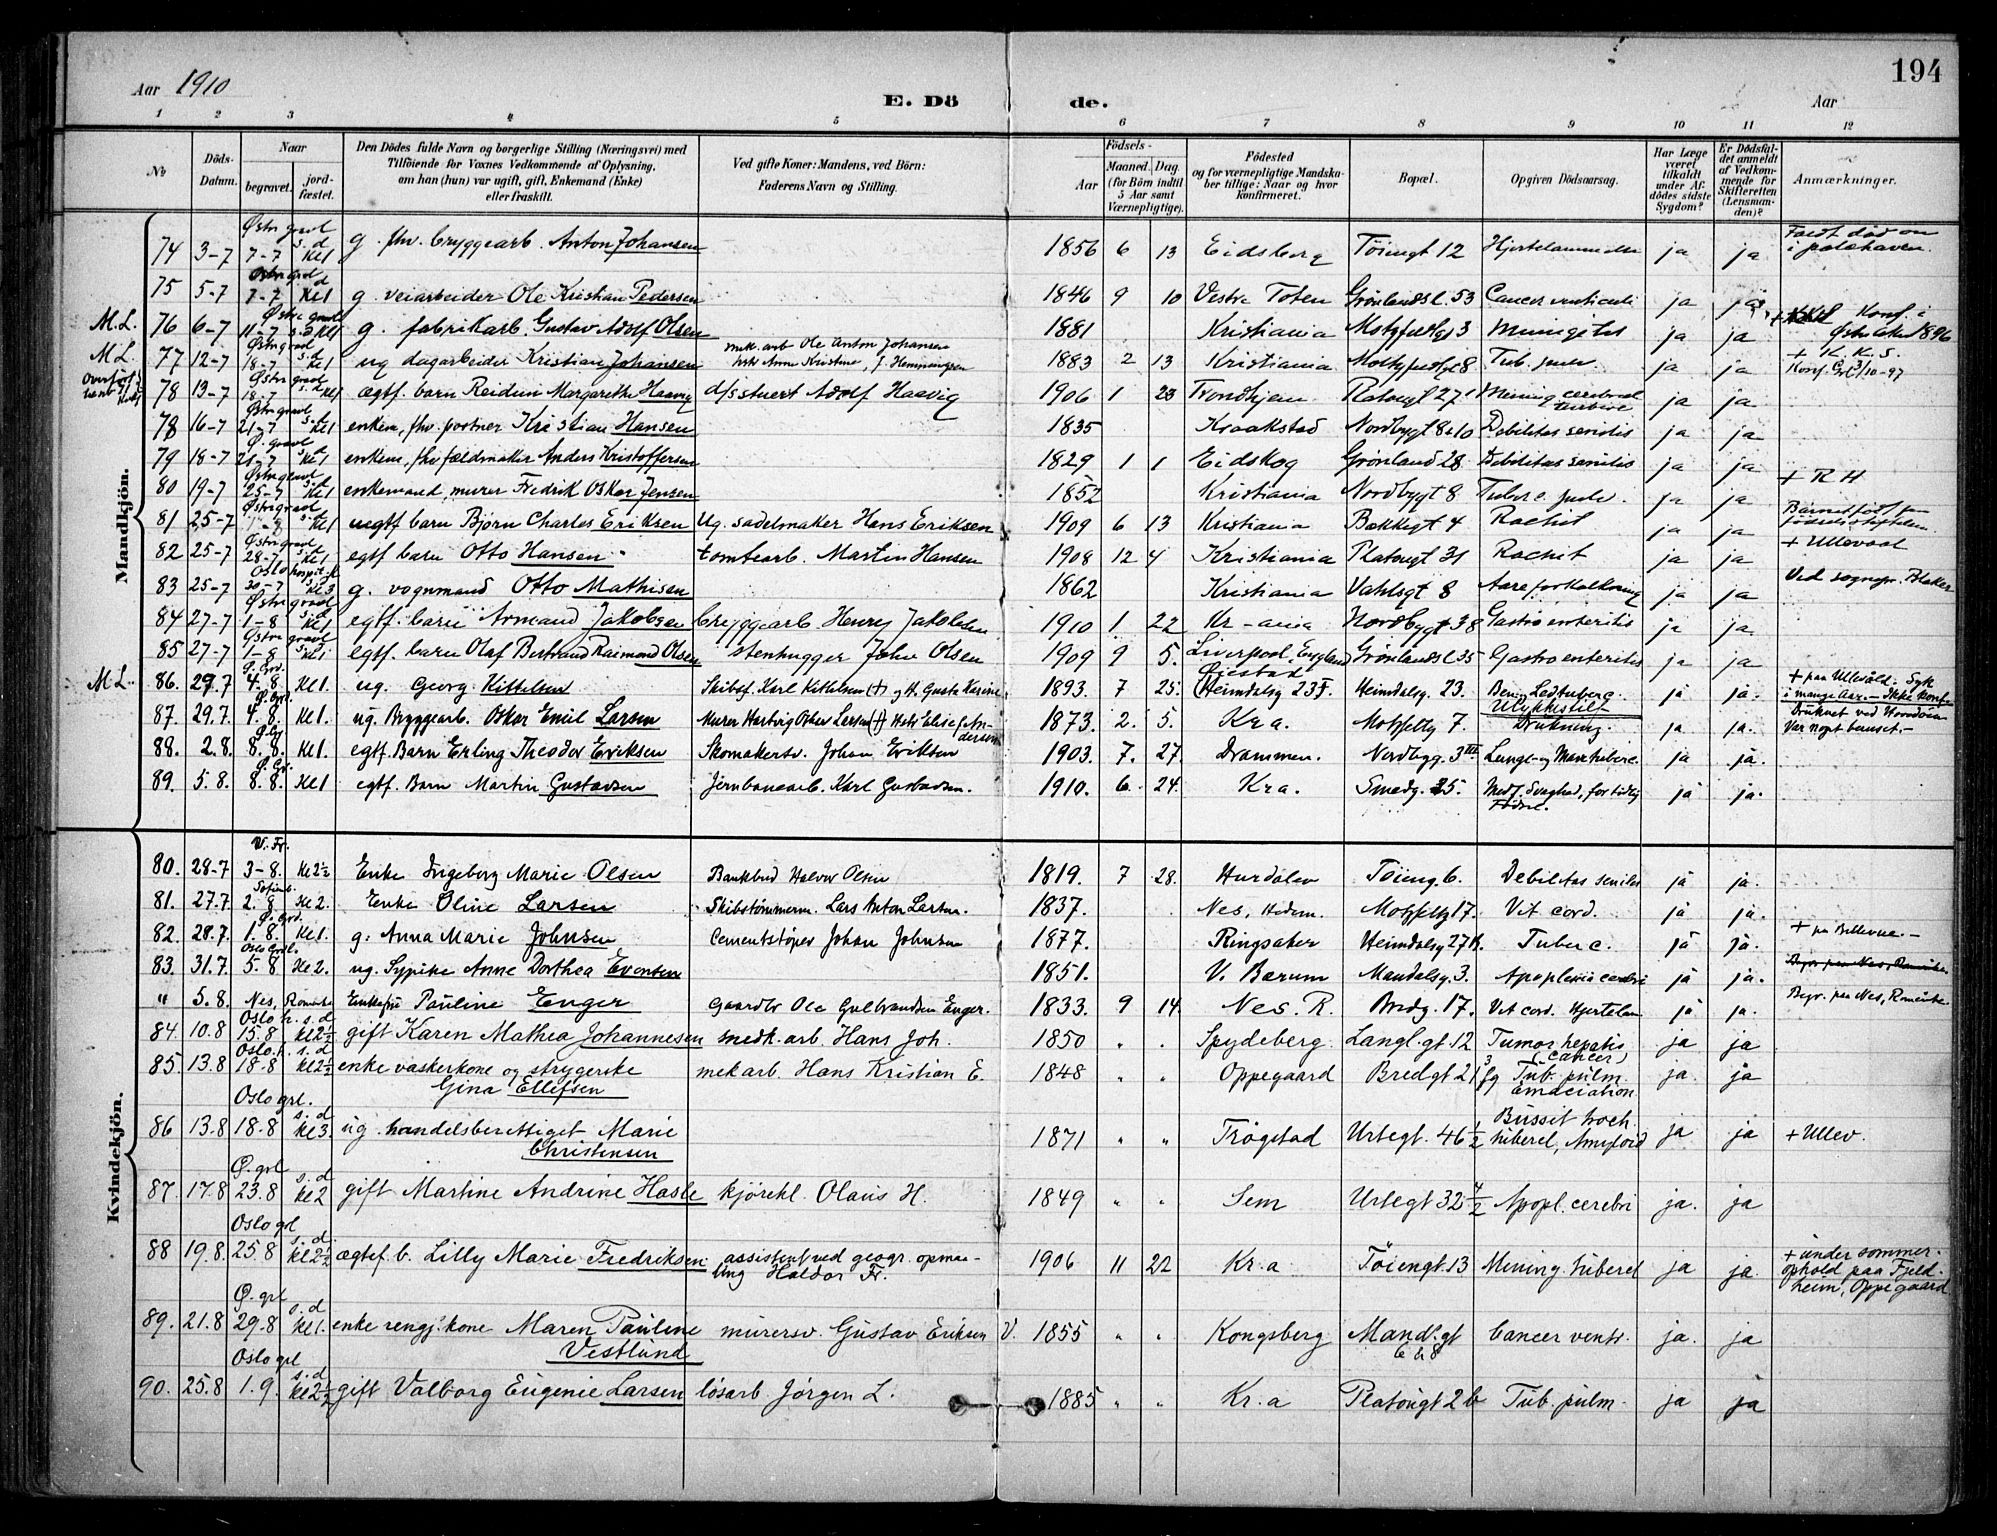 194
Aar 1910
E. Dö de.
Aar
1 2 3 4 5 6 7 8 9 10 11 12
No
Döds-Datum.
Naar begravet. jordfæstet.
Den Dödes fulde Navn og borgerlige Stilling (Næringsvei) med Tilföiende for Voxnes Vedkommende af Oplysning, om han (hun) var ugift, gift, Enkemand (Enke) eller fraskilt.
Ved gifte Koner: Mandens, ved Börn: Faderens Navn og Stilling.
Födsels-
Aar
Maaned. Dag.
(for Börn indtil 5 Aar samt Værnepligtige).
Födested og for værnepligtige Mandskaber tillige: Naar og hvor konfirmeret.
Bopæl.
Opgiven Dödsaarsag.
Har Læge været tilkaldt under Afdödes sidste Sygdom?
Er Dödsfaldet anmeldt af Vedkommende for Skifteretten (Lensmanden)?
Anmærkninger.
Mandkjön.
74 3-7 Østre gravl 7-7 s.d Kl 1 g. fhv. bryggearb. Anton Johansen 1856 6 13 Eidsberg Töiengt 12 ja ja
75 5-7 7-7 Kl 1 g. veiarbeider Ole Kristian Pedersen 1846 9 10 Vestre Toten Grönlandsl. 53 Cancer ventriculi ja ja
M.L. 76 6-7 11-7 s.d Kl 1 g. fabrikarb. Gustav Adolf Olsen 1881 Kristiania Motzfeldtsgt 3 Miningites ja ja Konf. i 1896
M.L. 77 12-7 18-7 s.d Kl 1 ug dagarbeider Kristian Johansen mek. arb Ole Anton Johansen 1883 2 13 Kristiania Motzfeldtsgt 8 Tub. pulm. ja ja + K. K. S.
78 13-7 18-7 s.d Kl 1 ægtf. barn Reidun Margarethe Haavig d/s stuert Adolf Haavig 1906 1 23 Trondhjem Platougt 27 ja ja
78 16-7 21-7 Kl 1 enkem, fhv. portner Kristian Hansen 1835 Kraakstad Nordbygt 8 & 10 Debilitas senilis ja ja
79 18-7 21-7 Kl 1 enkem, fhv fældmaker Anders Kristoffersen 1829 1 1 Eidskog Grönland 28 Debilitas senilis ja ja
80 19-7 25-7 Kl 1 enkemand, murer Fredrik Oskar Jensen 1852 Kristiania Nordbygt 8 Tuberc. pulm. ja ja + R H
81 25-7 1-8 Kl 1 uegtf barn Björn Charles Eriksen Ug. sadelmaker Hans Eriksen 1909 6 13 Kristiania Bakkegt 4 Rachit ja ja
82 25-7 28-7 Kl 1 egtf barn Otto Hansen tomtearb. Martin Hansen 1908 12 4 Kristiania Platougt 31 Rachit ja ja + Ullevaal
83 25-7 30-7 Kl 3 g. vognmand Otto Mathisen 1862 Kristiania Vahlsgt 8 Aareforkalkning ja ja Ved sognepr. Blaker
84 27-7 1-8 s.d Kl 1 egtf. barn Armand Jakobsen bryggearb Henry Jakobsen 1910 1 22 Kr-ania Nordbygt 38 Gastro enteritis ja ja
85 27-7 1-8 Kl 1 egtf. barn Olaf Bertrand Raimond Olsen stenhugger John Olsen 1909 9 5. Liverpool, England Grönlandsl. 35 Gastroenterites ja ja
M L. 86. 29.7 4.8. Kl 1. ug. Georg Kittelsen Skibsf. Karl Kittelsen (+) og H. Gusta Karine 1893. 7 25. Øiestad (Heimdalsg 23 Heimdalsg. 23. ja ja. + paa Ullevold. Syk i mange Aar. - Ikke konf.
87. 29.7. 4.8. Kl 1. ug. Bryggearb. Oskar Emil Larsen 1873. 2. 5. Kr a. Motzfeldtg 7. Ulykkestilf Drukning. ja ja.
88. 2.8. 8.8. Kl 1. egtf. Barn Erling Theodor Eriksen Skomakersv. Johan Eriksen 1903. 7. 27. Drammen. Nordbyg. 3 ja ja.
89. 5.8. 8.8. Kl 1 egtf. Barn Martin Gustavsen Jernbanearb. Karl Gustavsen. 1910. 6. 24. Kr a. Smedg. 25. Medf. Svaghed, for tidlig Födsel. ja ja.
Kvindekjön.
80. 28-7 V. Fr. 3-8. Kl 2½ Enke Ingeborg Marie Olsen Bankbud Halvor Olsen 1819. 7 28. Hurdalen Töieng. 6. Debilitas seniles ja ja.
81. 27.7. 2.8 Kl 2. Enke Oline Larsen Skibstömmerm. Lars Anton Larsen. 1837. Nes, Hedem. Motzfeldtg 17. Vit cord. ja ja.
82. 28.7. 1.8. Kl 1. g. Anna Marie Johnsen Cementstöper Johan Johnsen 1877. Ringsaker Heimdalsg 27 Tuberc. ja ja. + paa Bellevue. -
83. 31.7. 5.8 Kl 2. ug. Sypike Anne Dorthea Evensen 1851. V. Bærum Mandalsg. 3. Apoplexia cerebri ja ja. Begr. paa Nes, Romerike
" 5.8. Nes, Romerike Enkefru Pauline Enger Gaardbr Ole Gulbrandsen Enger. 1833 9 14. Nes. R. Bredg. 17. Vit cord. ja ja. Begr. paa Nes, Romerike
84. 10.8 Oslo h. s.d 15.8 Kl 2½ gift Karen Mathea Johannesen smedk. arb. Hans Joh. 1850 " " Spydeberg Langl. gt 12 Tumor hepatis (cancer) ja ja
85. 13.8 Oslo h. s.d 18-8 Kl 2½ enke vaskerkone og strygerske Gina Ellefsen mek arb. Hans Kristian E. 1848 " " Oppegaard Bredgt 21 Tub. pulm. Emaciation ja. ja
86 13.8 Oslo grl. s.d 18-8 Kl 3. ug. handelsberettiget Marie Christensen 1871 " " Trögstad Urtegt. 46½ ja ja + Ullev.
87. 17.8 Ø. grl s.d 23.8 Kl 2 gift Martine Andrine Hasle kjörekl. Olaus H. 1849 " " Sem Urtegt 32 Apopl. cerebri ja. ja
88 19.8. Oslo grl s.d 25 8 Kl 2½ ægtef. b. Lilly Marie Fredriksen assistent ved geogr. opmaaling Haldor Fr. 1906 11 22 Kr. a Töiengt. 13 Mining. tuberel ja ja. + under sommerophold paa Fjeldheim, Oppegaard
89. 21.8 Ø. grl s.d 29.8 Kl 1. enke rengj. kone Maren Pauline Vestlund murersv. Gustav Eriksen V. 1855 " " Kongsberg Mand.gt 6 & 8 Cancer ventr. ja. ja
90. 25.8 Oslo grl s.d 1.9. Kl 2½ gift Valborg Eugenie Larsen lösarb. Jörgen L. 1885 " " Kr. a Platougt 2 b Tub. pulm. ja ja